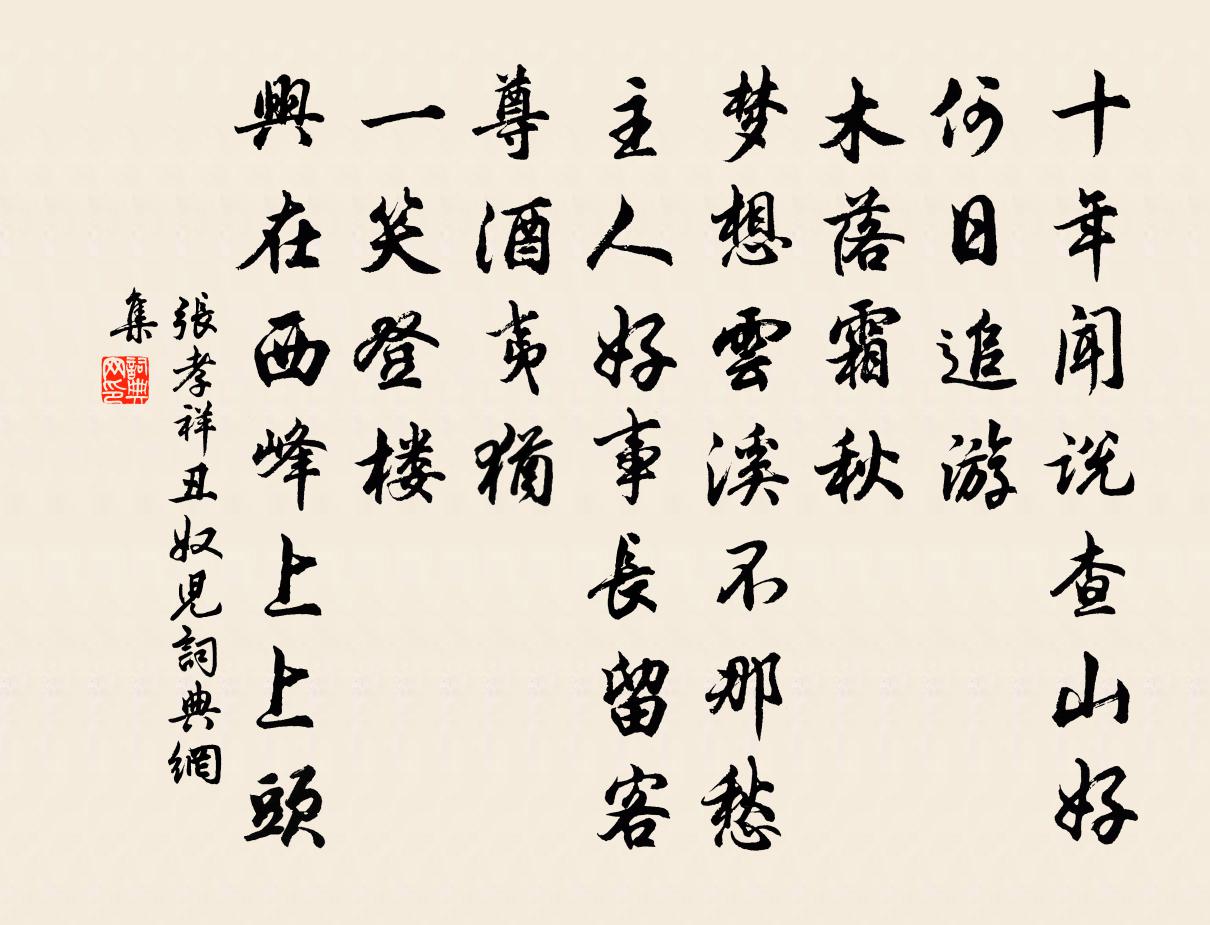 十年闻说查山好
何日追游
木落霜秋
梦想雲溪不那愁
主人好事長留客
尊酒夷猶
一笑登楼
興在西峰上上頭
張孝祥丑奴児詞典網
集
詞典網印